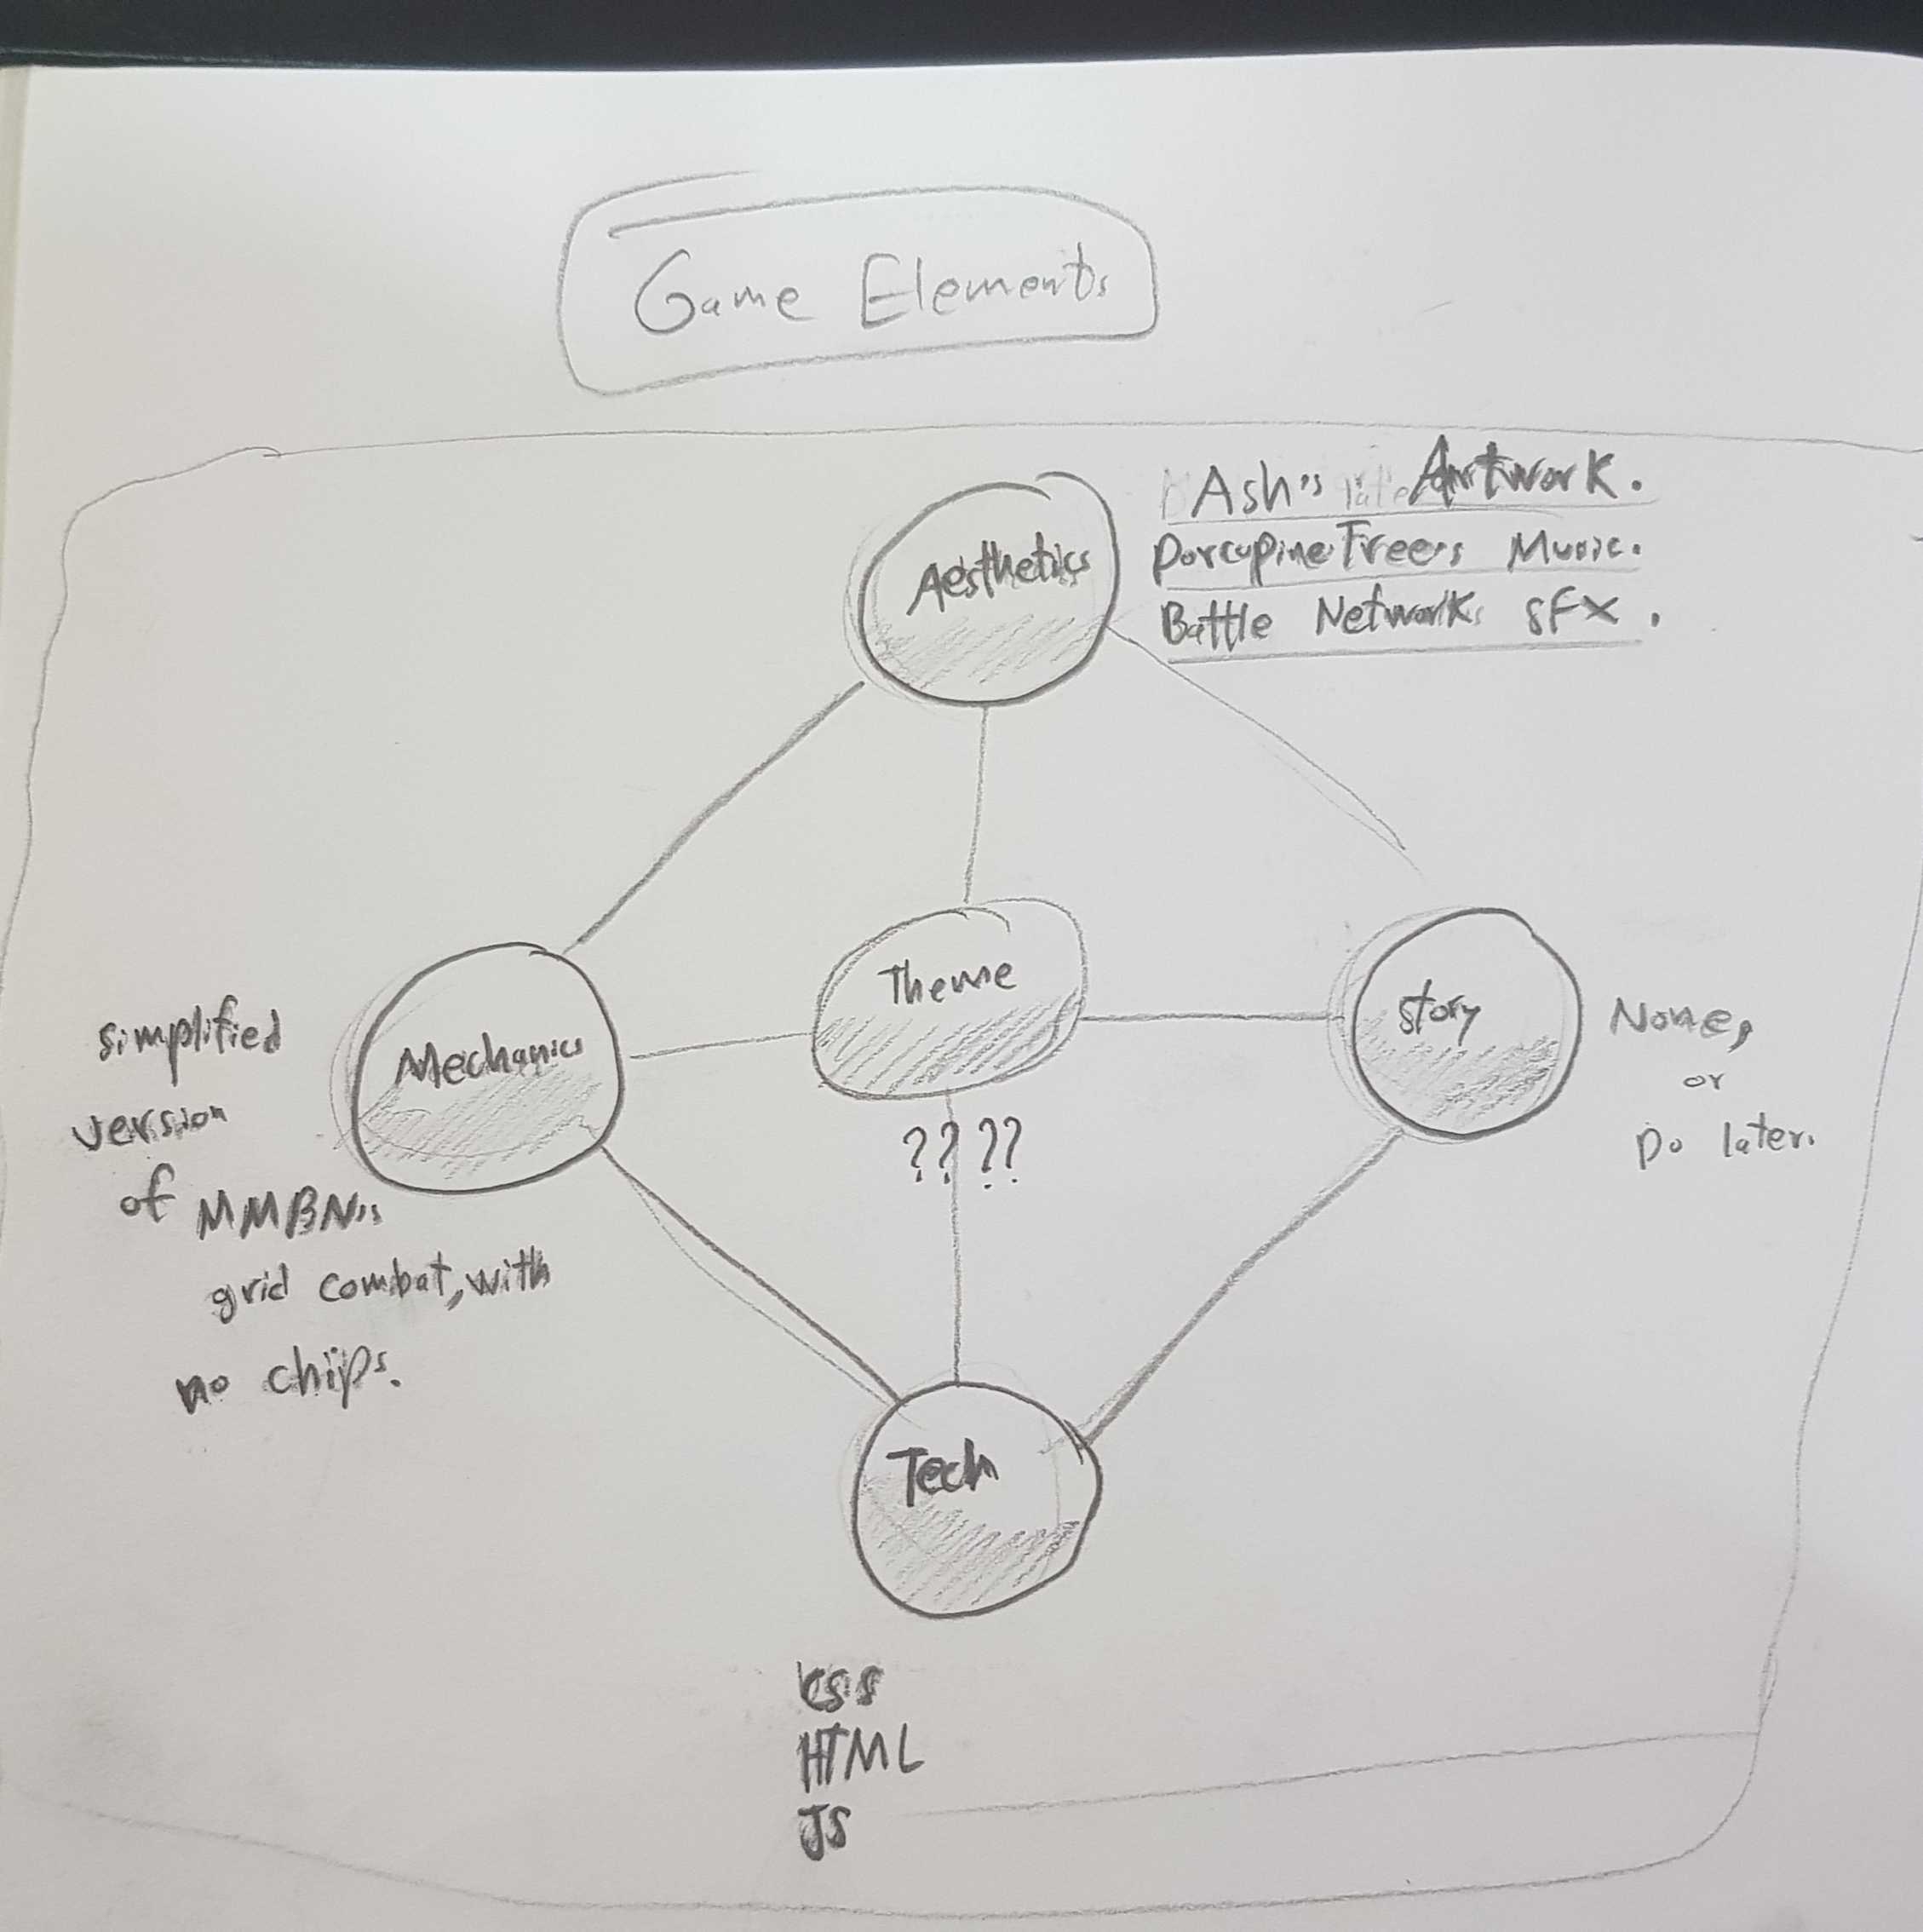 Game Elements
Aesthetics
Ash's Artwork.
Porcupine Tree's Music.
Battle Network's SFX.
Theme
????
Mechanics
simplified
version
of MMBN's
grid combat, with
no chips.
Story
None,
or
Do later.
Tech
CSS
HTML
JS